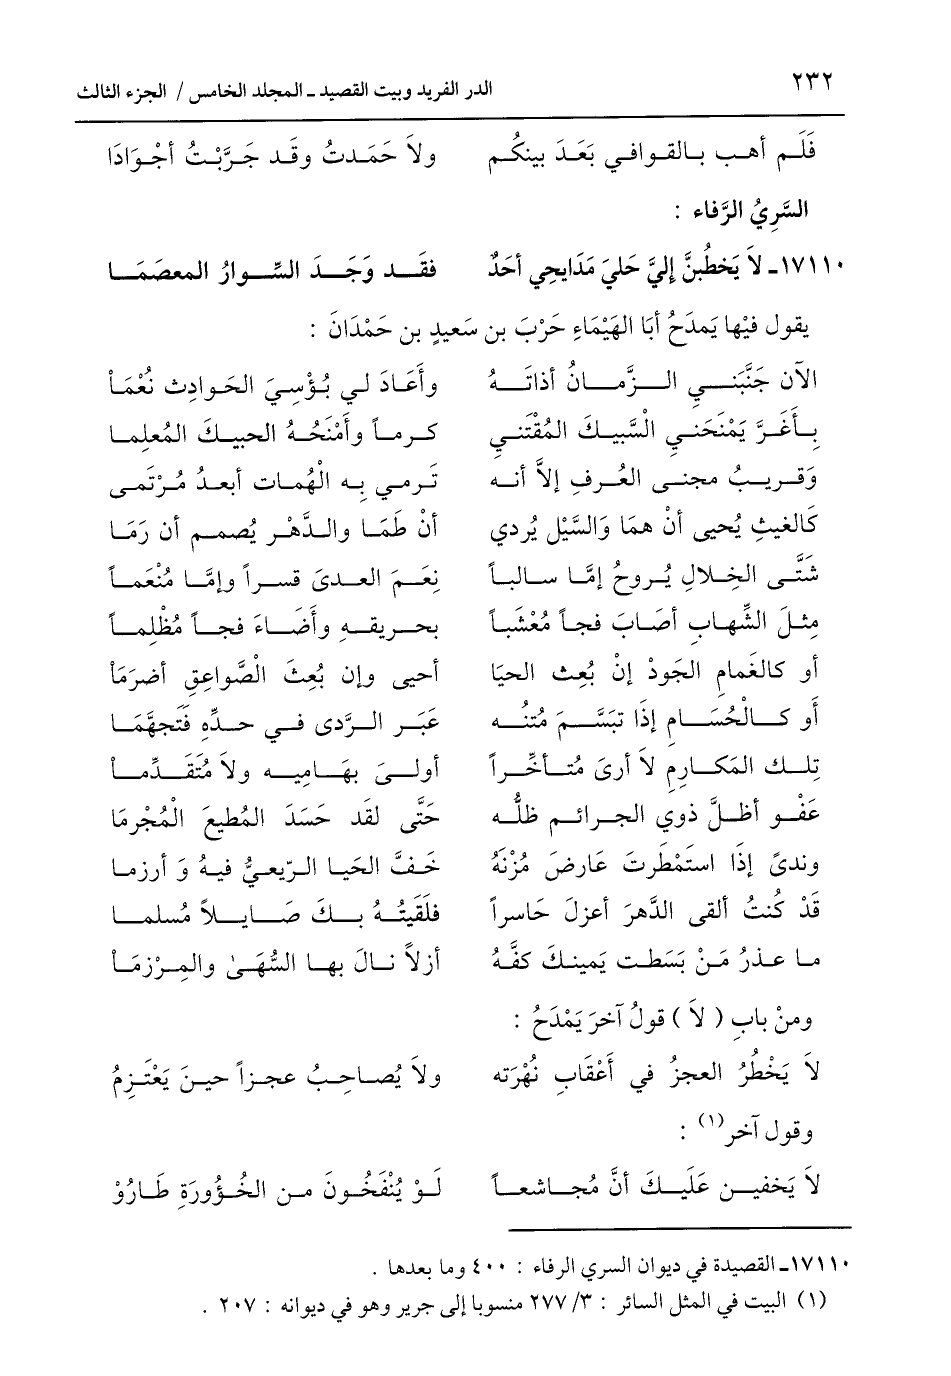 ٢٣٢
الدر الفريد وبيت القصيد ـ المجلد الخامس / الجزء الثالث
فَلَم أهب بالقوافي بَعَدَ بينكُم ولاَ حَمَدتُ وقَد جَرَّبْتُ أجْوَادَا
السَّرِيُ الرَّفاء :
١٧١١٠ـ لاَ يَخطُبنَّ إليَّ حَليَ مَدَايحِي أحَدٌ فقَد وَجَدَ السِّوارُ المعصَمَا
يقول فيْها يَمدَحُ أبَا الهَيْمَاءِ حَرْبَ بن سَعيدِ بن حَمْدَانَ :
الآن جَنَّبَني الزَّمانُ أذاتَهُ وأَعَادَ لي بُؤْسِيَ الحَوادِث نُعْمَاْ
بِأَغَرَّ يَمْنَحَني الْسَّبيكَ المُقْتَنِي كرماً وأَمْنَحُهُ الحبيكَ المُعلِما
وَقريبُ مجنى العُرفِ إلاَّ أنه تَرمي به الْهُمات أبعدُ مُرْتَمى
كَالغيثِ يُحيى أنْ همَا وَالسَّيْلِ يُردي أنْ طَمَا والدَّهْرِ يُصمم أن رَمَا
شَتَّى الخِلالِ يُروحُ إمَّا سالباً نِعَمَ العدىَ قسراً وإمَّا مُنْعَماً
مِثلَ الشِّهابِ أصَابَ فجاً مُعْشباً بحريقهِ وأضَاءَ فجاً مُظْلِماً
أو كالغَمامِ الجَودْ إنْ بُعِث الحيَا أحيى وإن بُعِثَ الْصَّواعِقِ أضرَمَاْ
أَو كالْحُسَامِ إذَا تبَسَّمَ مُتنُه عَبَرِ الرَّدى في حدِّه فَتَجهَّمَا
تِلك المَكارِمِ لاَ أرىَ مُتأخِّراً أولىَ بهَاميه ولاَ مُتَقَدِّماً
عَفْو أظلَّ ذوي الجرائم ظلُّه حَتَّى لقَد حَسَدَ المُطيعَ الْمُجْرِمَا
وندىً إذَا استمْطرتَ عَارِضَ مُزْنَهُ خَفَّ الحَيا الرّبعيُّ فيهُ وَ أرزما
قَدْ كُنتُ ألقى الدَّهرَ أعزلَ حَاسراً فَلَقيتُهُ بكَ صَايلاً مُسلِما
ما عذرُ مَنْ بَسَطت يَمينكَ كفَّهُ أزلاً نالَ بها السُّهىٰ والمِرْزمَاْ
ومنْ بابِ ( لاَ ) قولُ آخرَ يَمْدَحُ :
لاَ يَخْطُرُ العجزُ في أَعْقَابِ نُهْزَته ولاَ يُصاحِبُ عجزاً حينَ يَعْتَزِمُ
وقول آخر(١) :
لاَ يَخفين عَلَيكَ أنَّ مُجاشعاً لَوْ يُنْفَخُونَ من الخُؤُورَةِ طَارُوْ
١٧١١٠ـ القصيدة في ديوان السري الرفاء : ٤٠٠ وما بعدها .
(١) البيت في المثل السائر : ٣/ ٢٧٧ منسوبا إلى جرير وهو في ديوانه : ٢٠٧ .